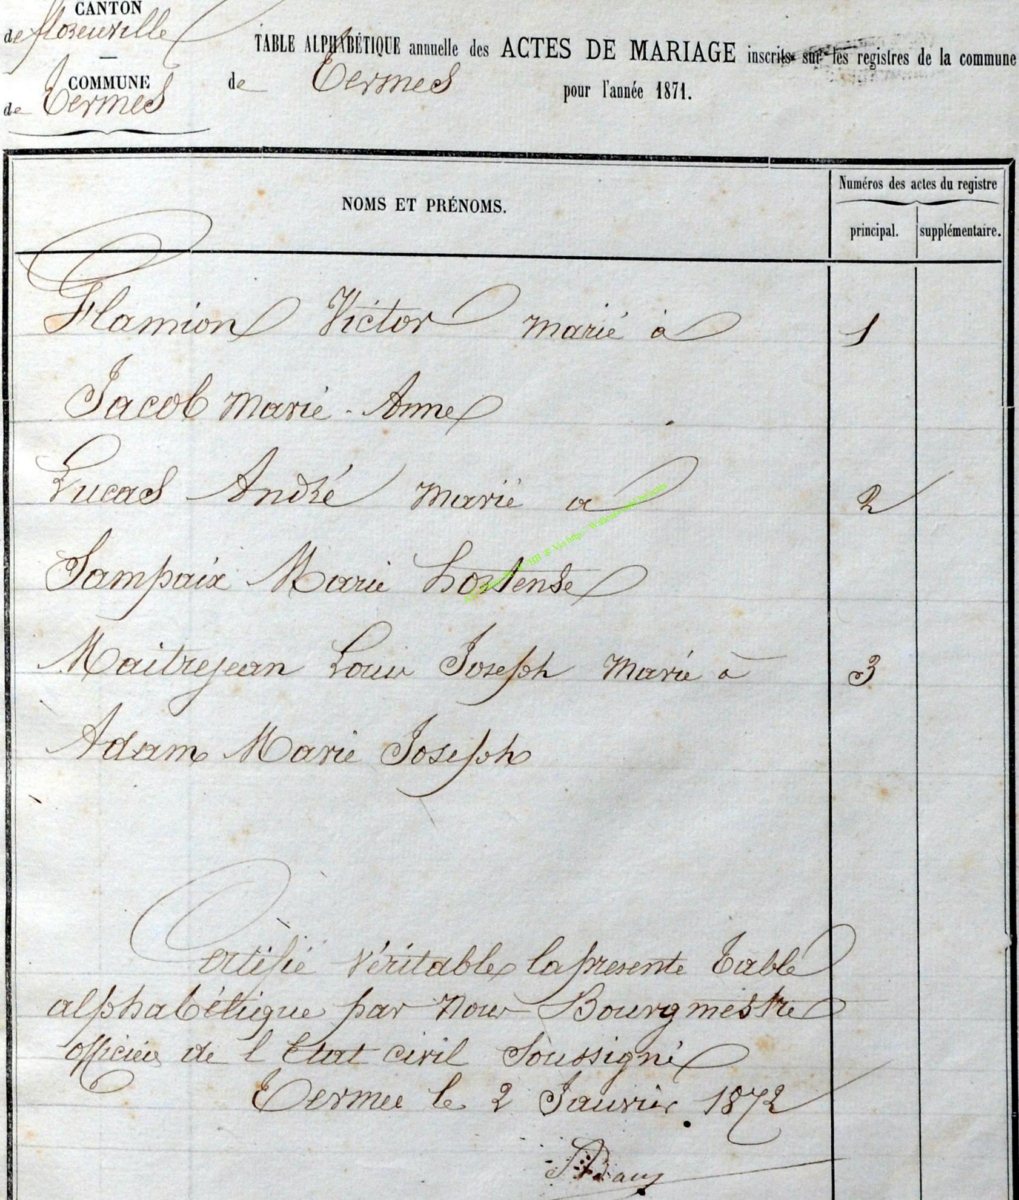 CANTON
de florenville
COMMUNE
de Termes
TABLE ALPHABÉTIQUE annuelle des ACTES DE MARIAGE inscrits sur les registres de la commune
de Termes pour l'année 1871.
NOMS ET PRÉNOMS.
Numéros des actes du registre
principal. supplémentaire.
Flamion Victor marié à 1
Jacob marie-Anne
Lucas André marié a 2
Sampaix Marie hortense
Maitrejean Louis Joseph marié à 3
Adam Marie Joseph
Certifié véritable la presente Table
alphabétique par nous Bourgmestre
officier de l Etat civil Soussigné
Termes le 2 Janvier 1872